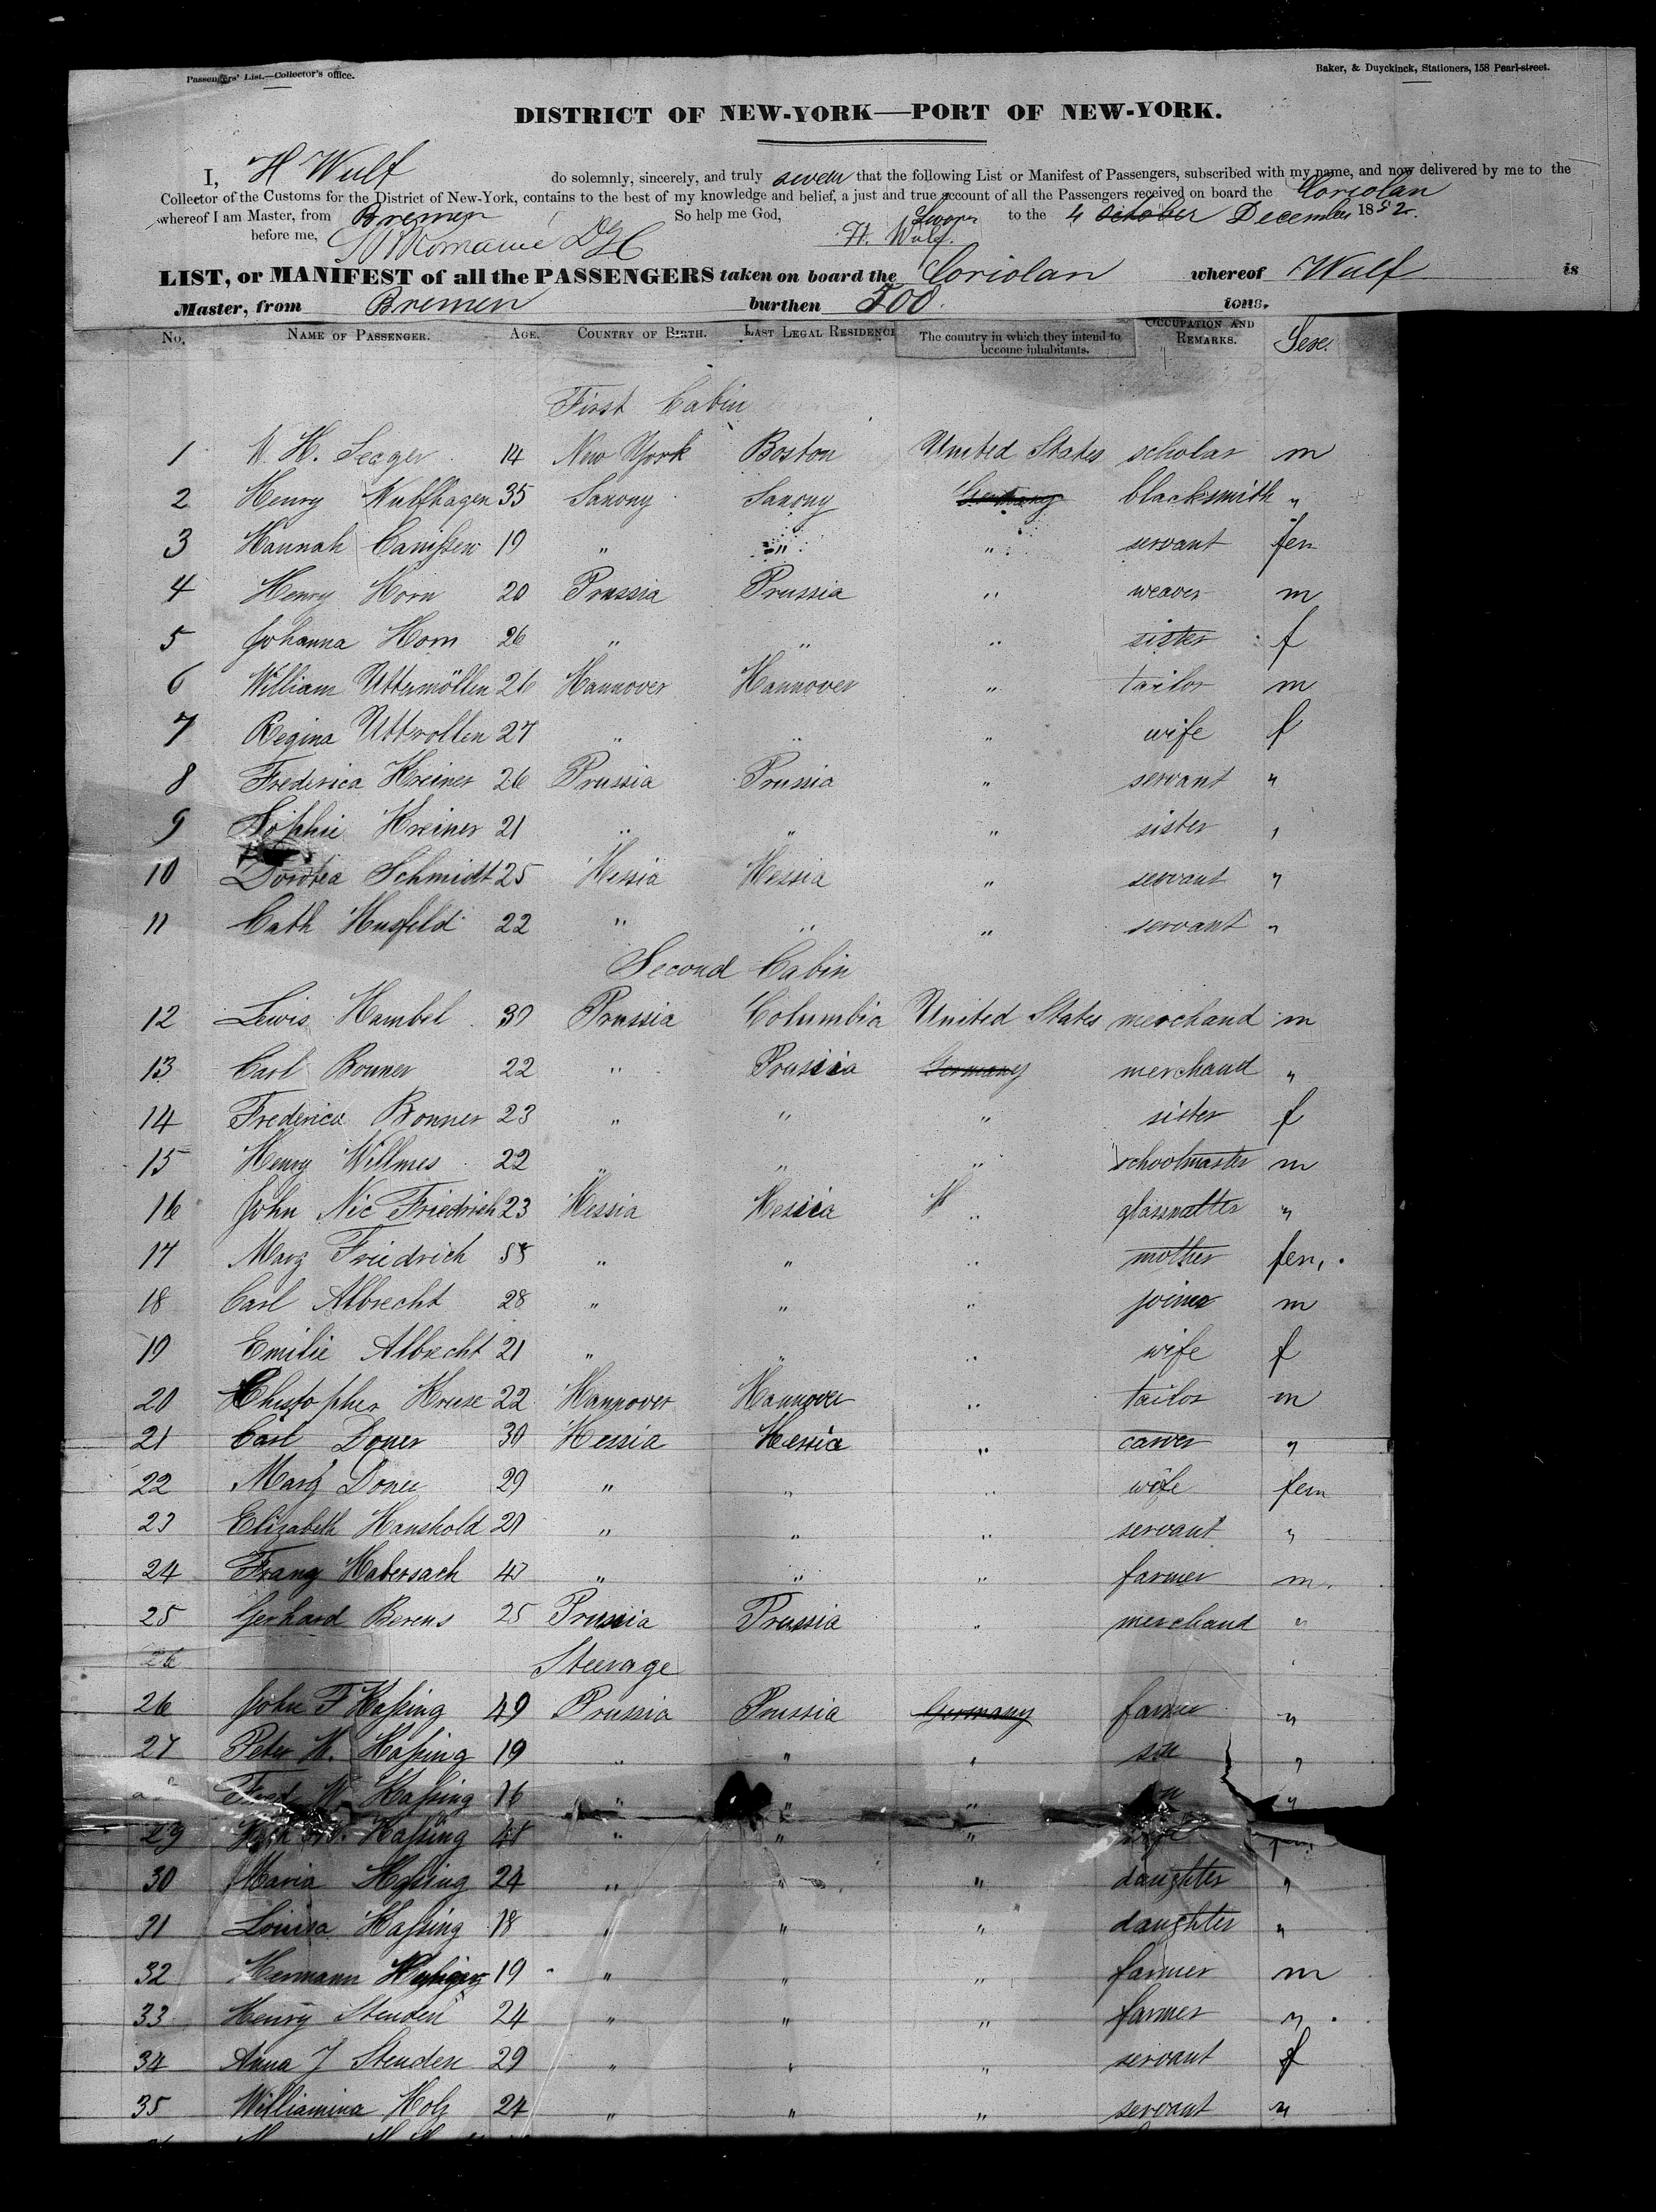 Passengers' List.—Collector's office.
Baker, & Duyckinck, Stationers, 158 Pearl-street.
DISTRICT OF NEW-YORK—PORT OF NEW-YORK.
I, H Wulf do solemnly, sincerely, and truly swear that the following List or Manifest of Passengers, subscribed with my name, and now delivered by me to the
Collector of the Customs for the District of New-York, contains to the best of my knowledge and belief, a just and true account of all the Passengers received on board the Coriolan
whereof I am Master, from Bremen So help me God, Sworn to the 4 October December 1852.
before me, H. Wulf.
LIST, or MANIFEST of all the PASSENGERS taken on board the Coriolan whereof Wulf is
Master, from Bremen burthen 500 tons.
No. NAME OF PASSENGER. AGE. COUNTRY OF BIRTH. LAST LEGAL RESIDENCE The country in which they intend to become inhabitants. OCCUPATION AND REMARKS. Sexe.
First Cabin
1 W. H. Seager 14 New York Boston United States scholar m
2 Henry Wulfhagen 35 Saxony Saxony Germany blacksmith "
3 Hannah 19 " " " servant fem
4 Henry Horn 20 Prussia Prussia " weaver m
5 Johanna Horn 26 " " " sister f
6 William Uttermöllen 26 Hannover Hannover " tailor m
7 Regina 27 " " " wife f
8 Frederica Kreiner 26 Prussia Prussia " servant "
9 Sophie Kreiner 21 " " " sister "
10 Dorotea Schmidt 25 Hessia Hessia " servant "
11 Cath Husfeld 22 " " " servant "
Second Cabin
12 Lewis Hambel 30 Prussia Columbia United States merchand m
13 Carl Bonner 22 " Prussia Germany merchand "
14 Frederica Bonner 23 " " " sister f
15 Henry Willmes 22 " " " schoolmaster m
16 John Nic Friedrich 23 Hessia Hessia " "
17 Marg Friedrich 55 " " " mother fem.
18 Carl Albrecht 28 " " " joiner m
19 Emilie Albrecht 21 " " " wife f
20 Christopher Kruse 22 Hannover Hannover " tailor m
21 Carl Doner 30 Hessia Hessia " carver "
22 Marg Doner 29 " " " wife fem
23 Elizabeth Haushold 20 " " " servant "
24 Franz Habersach 40 " " " farmer m.
25 Gerhard Berens 25 Prussia Prussia " merchand "
26 Steerage
26 John F Haßing 49 Prussia Prussia Germany farmer "
27 Peter H. Haßing 19 " " " son "
Fred W. Haßing 16 " " " "
29 Haßing 48 " " " wife
30 Maria Haßing 24 " " " daughter "
31 Louisa Haßing 18 " " " daughter "
32 Hermann 19 " " " farmer m
33 Henry Steuden 24 " " " farmer "
34 Anna J Steuden 29 " " " servant f
35 Williamina Holz 24 " " " servant "